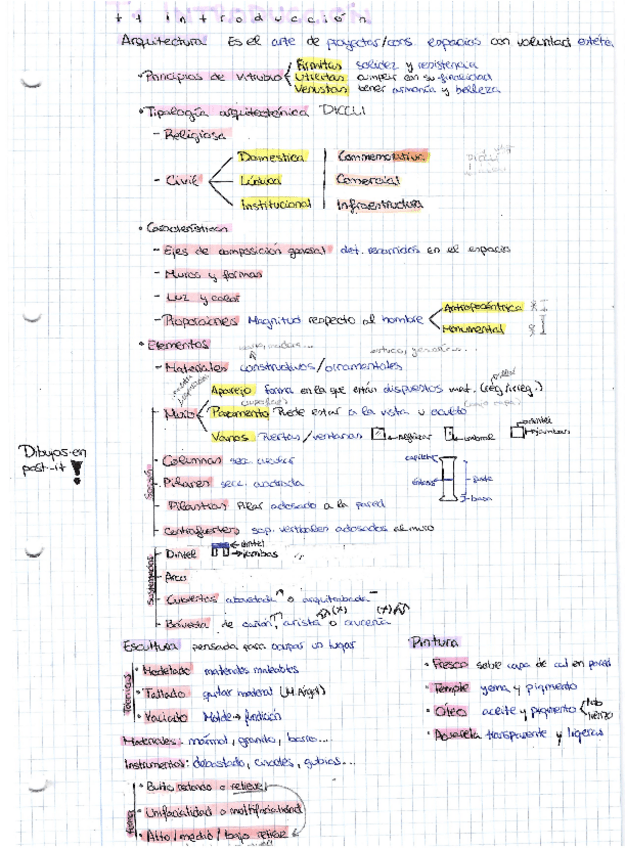 t1 introducción
Arquitectura Es el arte de proyectar/cons. espacios con voluntad estét.
• Principios de Vitruvio
Firmitas solidez y resistencia
Utilitas cumplir con su finalidad
Venustas tener armonía y belleza
• Tipología arquitectónica DICCLI
- Religiosa
- Civil
Domestica Commemorativa
Lúdica Comercial
Institucional Infraestructura
DICCLI
• Características
- Ejes de composición general det. recorridos en el espacio
- Muros y formas
- Luz y color
- Proporciones Magnitud respecto al hombre
Antropocéntrica
Monumental
• Elementos
- Materiales constructivos/ornamentales
- Muro
Aparejo forma en la que están dispuestos mat. (reg/irreg.)
Paramento Puede estar a la vista u oculto
Vanos Puertas/ventanas
umbral
dintel
jambas
Dibujos en
post-it !
- Columnas sec. circular
- Pilares secc. cuadrada
- Pilastras Pilar adosado a la pared
- Contrafuertes sop. verticales adosados al muro
capitel
fuste
basa
- Dintel
dintel
jambas
- Arco
- Cubiertas abovedada o arquitrabada
- Bóveda de cañón, arista o crucería
Escultura pensada para ocupar un lugar
Técnicas
• Modelado materiales maleables
• Tallado quitar material (M.Ángel)
• Vaciado Molde → fundición
Materiales: mármol, granito, barro...
Instrumentos: devastado, cinceles, gubias...
• Bulto redondo o relieve
• Unifacialidad o multifacialidad
• Alto/medio/bajo relieve
Pintura
• Fresco sobre capa de cal en pared
• Temple yema y pigmento
• Óleo aceite y pigmento
lienzo
• Acuarela transparente y ligeras